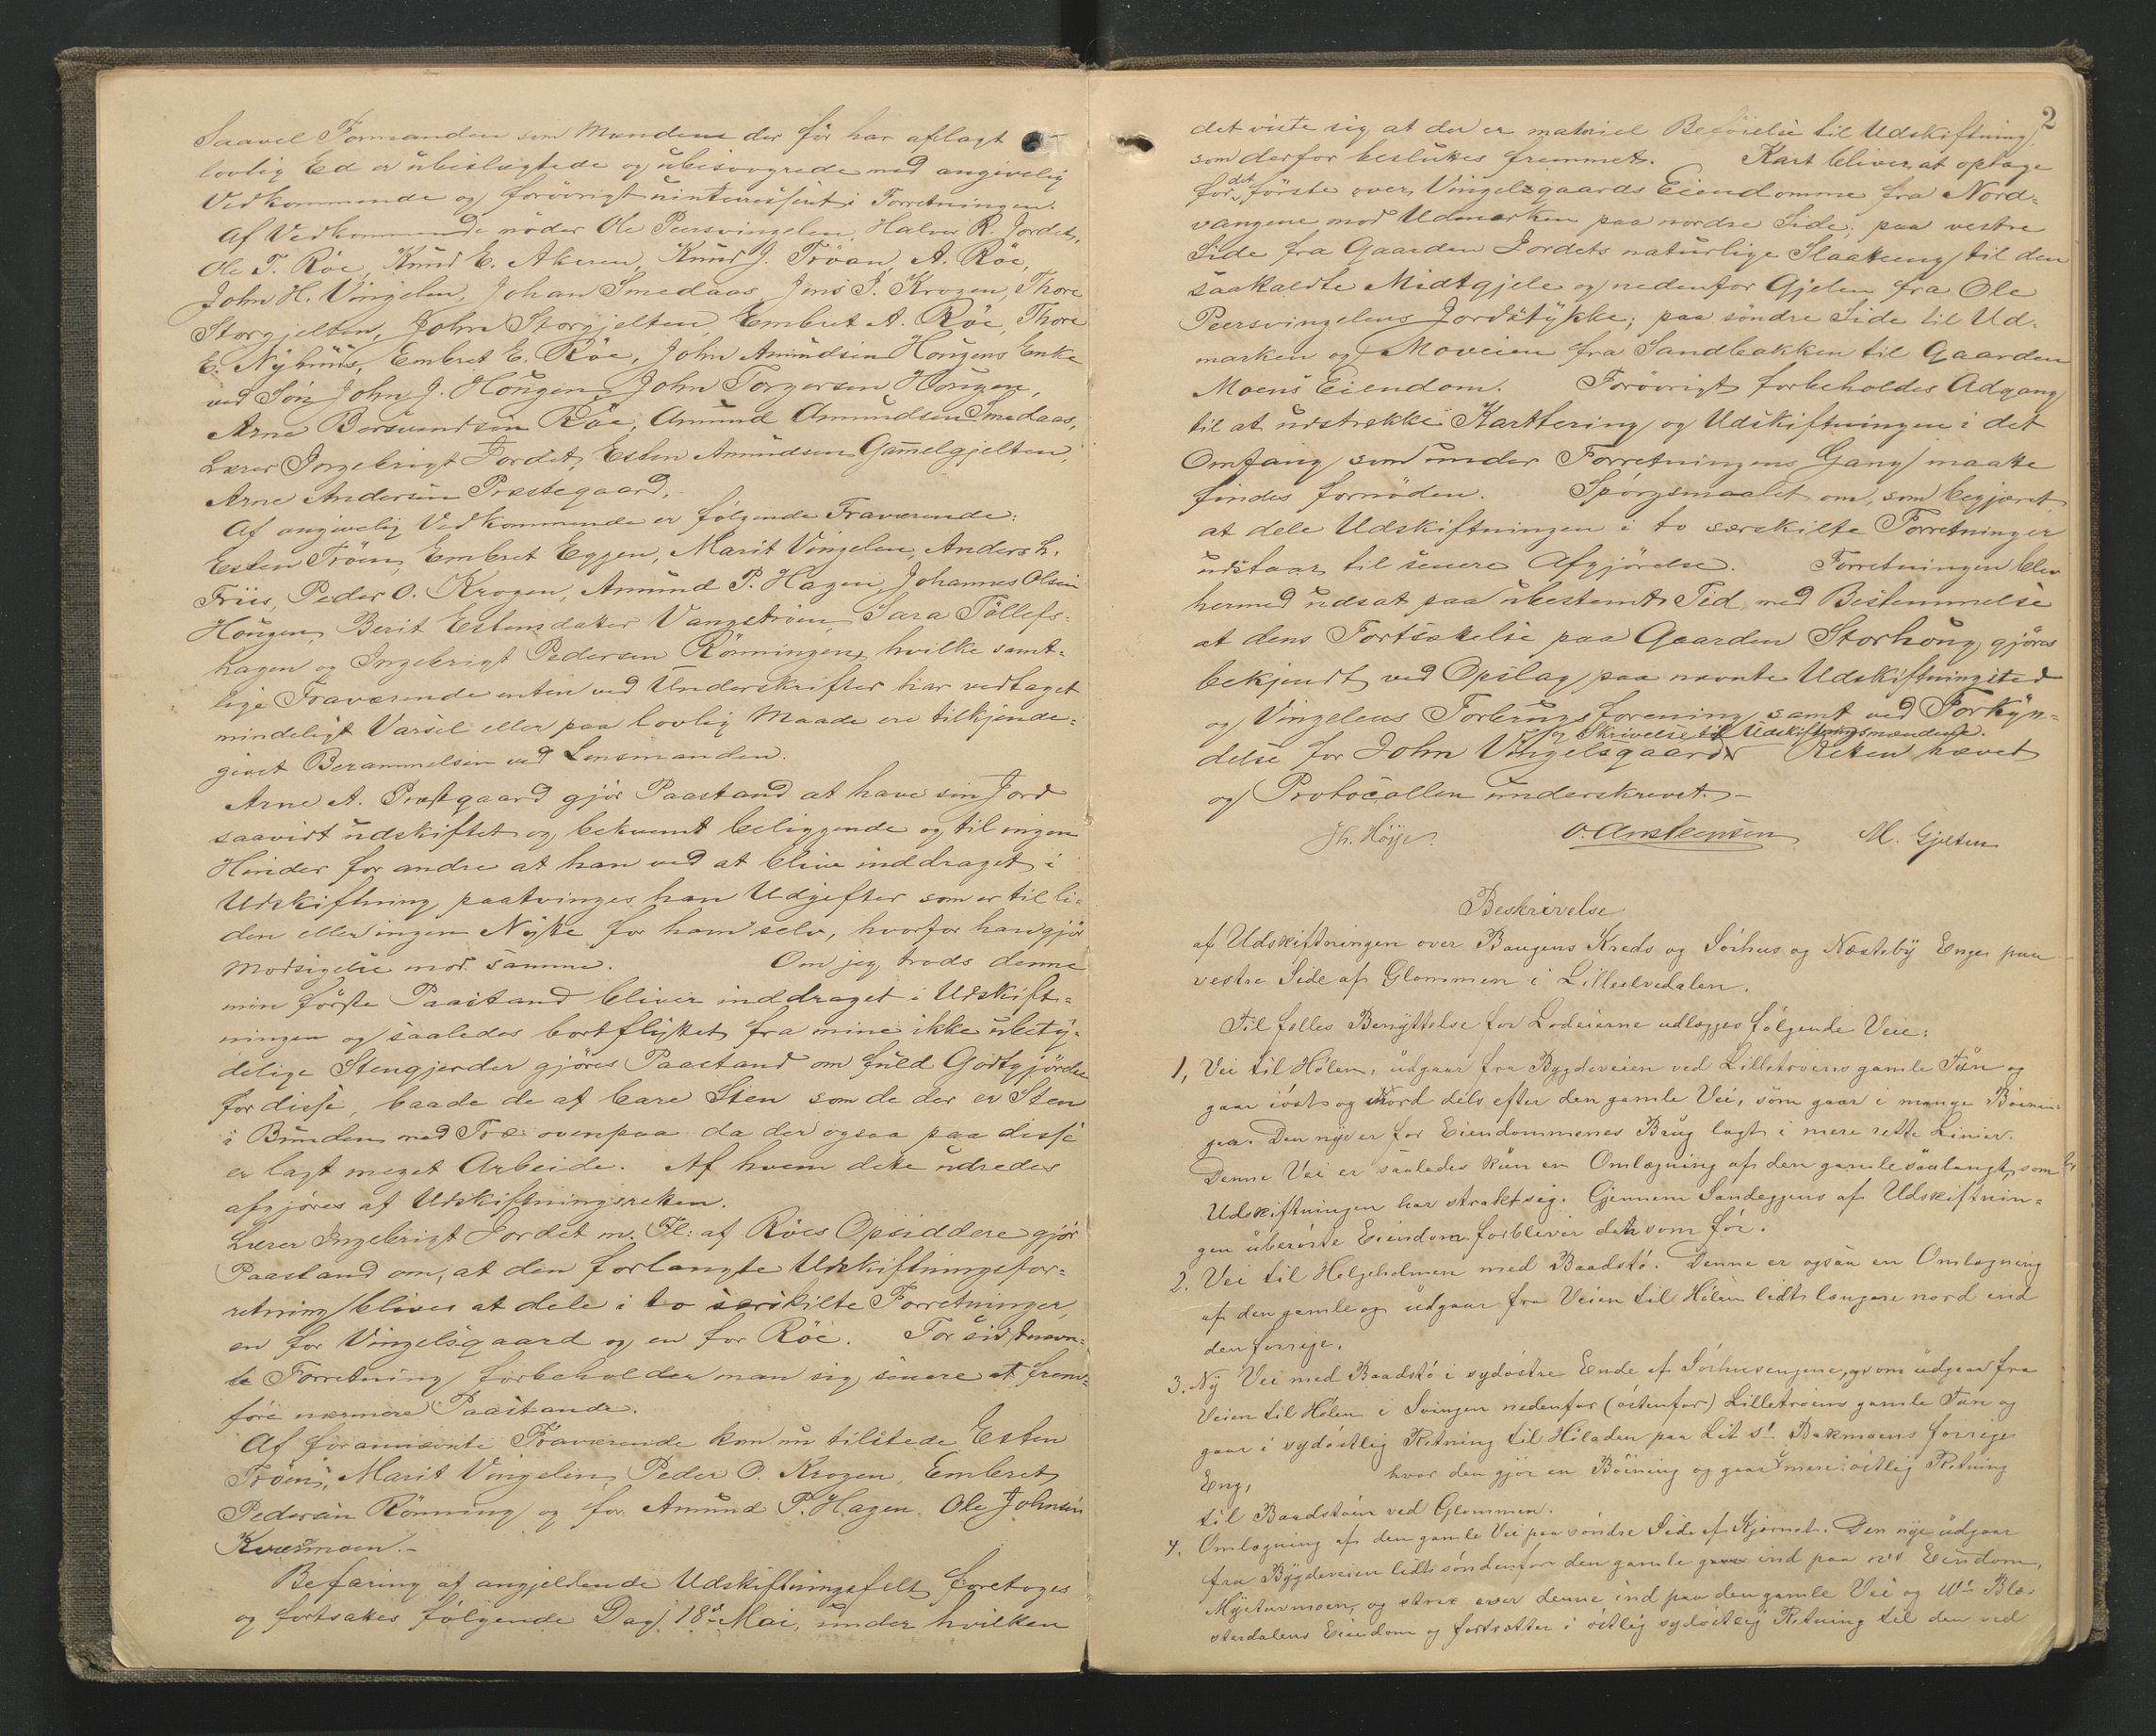 Saavel Formanden som Mændene der før har aflagt
lovlig Ed er ubeslægtede og ubesvogrede med angivelig
Vedkommende og forøvrigt uinteresseret i Forretningen.
Af Vedkommende møder Ole Peersvingelen, Halvor R. Jordet,
Ole T. Röe, Knud E. Akeren, Knud J. Tröan, A. Röe,
John H. Vingelen, Johan Smedaas, Jens J. Krogen, Thore
Storgjelten, John Storgjelten, Embret A. Röe, Thore
E. Nÿhuus, Embret E. Röe, John Amundsen Hougens Enke
ved Søn John J. Hougen, John Torgersen Hougen,
Arne Börsvendsen Röe, Amund Amundsen Smedaas,
Lærer Ingebrigt Jordet, Esten Amundsen Gam̅elgjelten,
Arne Andersen Præstegaard.
Af angivelig Vedkommende er følgende Fraværende:
Esten Tröen, Embret Eggen, Marit Vingelen, Anders H.
Friis, Peder O. Krogen, Amund P. Hagen, Johannes Olsen
Hougen, Berit Estensdatter Vangströen, Sara Tollefs-
hagen og Ingebrigt Pedersen Rönningen, hvilke samt-
lige Fraværende enten ved Underskrifter har vedtaget
mindeligt Varsel eller paa lovlig Maade ere tilkjende-
givet Berammelsen ved Lensmanden.
Arne A. Præstgaard gjør Paastand at have sin Jord
saavidt udskiftet og bekvemt beliggende og til ingen
Hinder for andre at han ved at blive inddraget i
Udskiftning paatvinges han Udgifter som er til li-
den eller ingen Nÿtte for ham selv, hvorfor han gjör
Modsigelse mod samme. Om jeg trods denne
min første Paastand bliver inddraget i Udskift-
ningen og saaledes bortflÿttet fra mine ikke ubetÿ-
delige Stengjerder gjöres Paastand om fuld Godtgjörelse
for disse, baade de af bare Sten som de der er Sten
i Bunden med Træ ovenpaa da der ogsaa paa disse
er lagt meget Arbeide. Af hvem dette udredes
afgjöres af Udskiftningsretten.
Lærer Ingebrigt Jordet m. Fl: af Röes Opsiddere gjör
Paastand om, at den forlangte Udskiftningsfor-
retning bliver at dele i to særskilte Forretninger,
en for Vingelsgaard og en for Röe. For sidstnævn-
te Forretning forbeholder man sig senere at frem-
före nærmere Paastande.
Af forannævnte Fraværende kom nu tilstede Esten
Tröen, Marit Vingelen, Peder O. Krogen, Embret
Pedersen Rönning og for Amund P. Hagen Ole Johnsen
Kværnmoen.-
Befaring af angjeldende Udskiftningsfelt foretoges
og fortsattes følgende Dag 18de Mai, under hvilken
2
det viste sig at der er materiel Beföielse til Udskiftning,
som derfor besluttes fremmet. Kart bliver at optage
for det förste over Vingelsgaards Eiendomme fra Nord-
vangene mod Udmarken paa nordre Side; paa vestre
Side fra Gaarden Jordets naturlige Slaatteeng til den
saakaldte Midtgjele og nedenfor Gjelen fra Ole
Peersvingelens Jordstÿkke; paa söndre Side til Ud-
marken og Moveien fra Sandbakken til Gaarden
Moens Eiendom. Forövrigt forbeholdes Adgang
til at udstrække Karttering og Udskiftningen i det
Omfang som under Forretningens Gang maatte
findes fornöden. Spörgsmaalet om, som begjæret,
at dele Udskiftningen i to særskilte Forretninger
udstaar til senere Afgjörelse. Forretningen blev
hermed udsat paa ubestemt Tid med Bestemmelse
at dens Fortsættelse paa Gaarden Storhoug gjöres
bekjendt ved Opslag paa nævnte Udskiftningssted
og Vingelens Forbrugsforening samt ved Forkÿn-
og Skrivelse til Udskiftningsmændene.
delse for John Vingelsgaard. Retten hævet
og Protocollen underskrevet.-
Th. Höye. O. Anstensen M. Gjelten
Beskrivelse
af Udskiftningen over Baugens Kreds og Sörhus og Næstebÿ Enger paa
vestre Side af Glommen i Lilleelvedalen.
Til fælles Benÿttelse for Lodeierne udlægges følgende Veie:
1, Vei til Hölen, udgaar fra Bygdeveien ved Lilletröens gamle Tun og
gaar i öst og Nord dels efter den gamle Vei, som gaar i mange Böinin-
ger. Den nye er for Eiendommenes Brug lagt i mere rette Linier.
Denne Vei er saaledes kun en Omlægning af den gamle saalangt, som
Udskiftningen har strakt sig. Gjennem Sandeggens af Udskiftnin-
gen uberörte Eiendom forbliver den som för.
2. Vei til Helgeholmen med Baadstö. Denne er ogsaa en Omlægning
af den gamle og udgaar fra Veien til Hölen lidt længere nord end
den forrige.
3. Nÿ Vei med Baadstö i sydöstre Ende af Sörhusengene, som udgaar fra
Veien til Hölen i Svingen nedenfor (östenfor) Lilletröens gamle Tun og
gaar i sydöstlig Retning til Höladen paa Lit s' Bakmoens forrige
Eng, hvor den gjör en Böining og gaar i mere östlig Retning
til Baadstöen ved Glommen.
4. Omlægning af den gamle Vei paa söndre Side af Kjernet. Den nye udgaar
fra Bÿgdeveien lidt söndenfor den gamle ind paa Eiendom,
og over denne ind paa den gamle Vei og Ws Blæ-
sterdalens Eiendom og fortsætter i östlig sydöstlig Retning til den ved